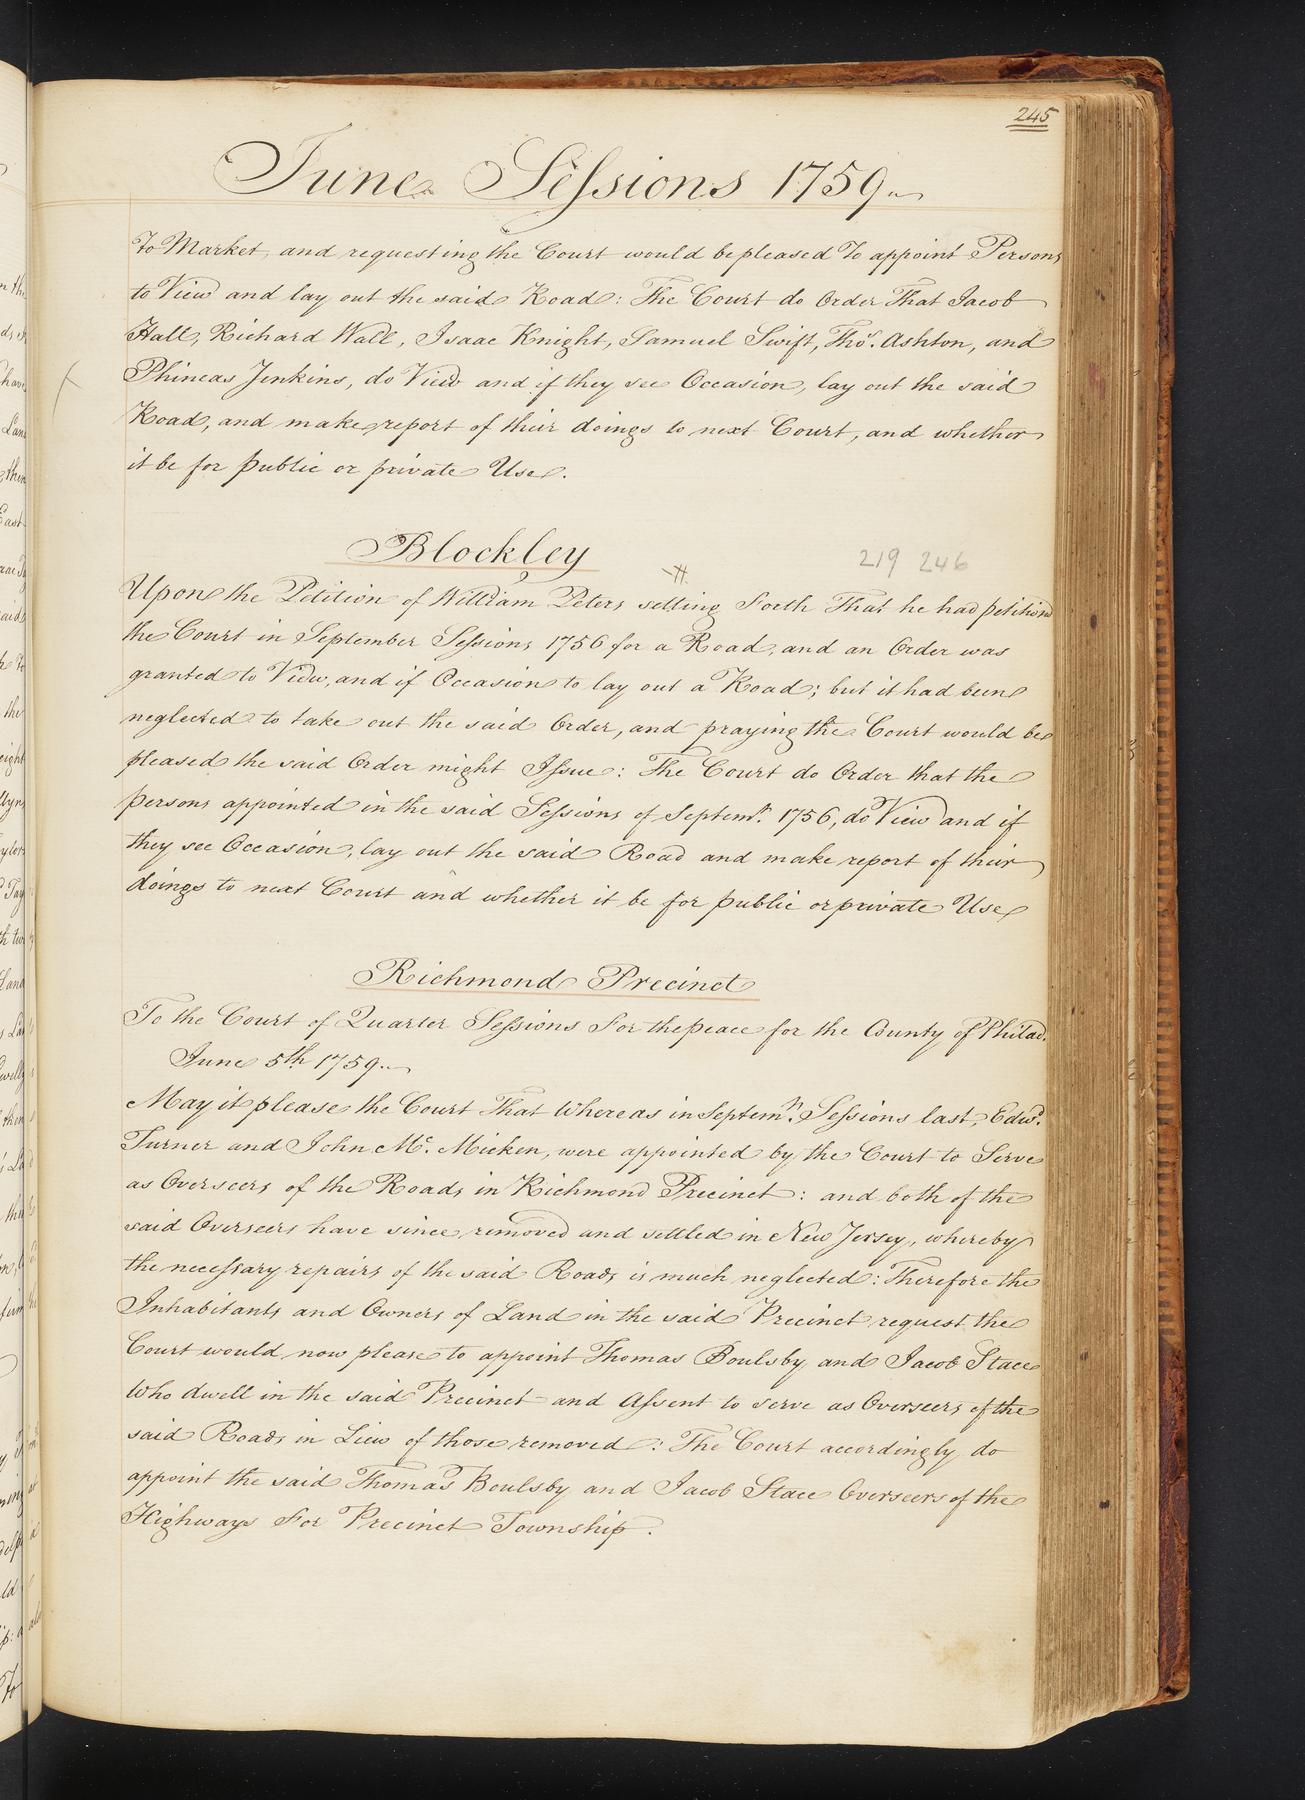 245
June Sessions 1759
To Market, and requesting the Court would be pleased To appoint Persons
to View and lay out the said Road: The Court do Order That Jacob
Hall, Richard Wall, Isaac Knight, Samuel Swift, Thos. Ashton, and
Phineas Jenkins, do View and if they see Occasion, lay out the said
Road, and make report of their doings to next Court, and whether
it be for public or private Use.
Blockley
219 246
Upon the Petition of William Peters setting Forth That he had petition
the Court in September Sessions 1756 for a Road, and an Order was
granted to View, and if Occasion to lay out a Road; but it had been
neglected to take out the said Order, and praying the Court would be
pleased the said Order might Issue: The Court do Order that the
persons appointed in the said Sessions of Septemr. 1756, do View and if
they see Occasion, lay out the said Road and make report of their
doings to next Court and whether it be for public or private Use
Richmond Precinct
To the Court of Quarter Sessions For the peace for the County of Philad.
June 5th 1759
May it please the Court That Whereas in Septemr. Sessions last, Edwd.
Turner and John Mc. Micken, were appointed by the Court to Serve
as Overseers of the Roads in Richmond Precinct: and both of the
said Overseers have since removed and settled in New Jersey, whereby
the necessary repairs of the said Roads is much neglected: Therefore the
Inhabitants and Owners of Land in the said Precinct request the
Court would now please to appoint Thomas Boulsby and Jacob Stace
Who dwell in the said Precinct and Assent to serve as Overseers of the
said Roads in Lieu of those removed: The Court accordingly do
appoint the said Thomas Boulsby and Jacob Stace Overseers of the
Highways For Precinct Township.